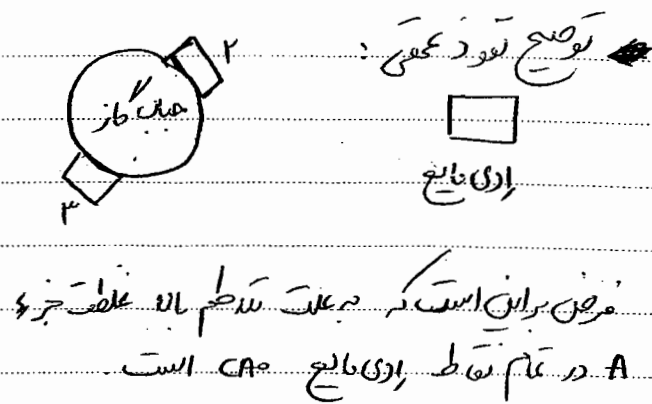 توضیح نفوذ عمقی :
۲
حباب گاز
۳
ادی مایع
فرض بر این است که به علت تلاطم بالا غلظت جزء
A در تمام نقاط ادی مایع CA۰ است.